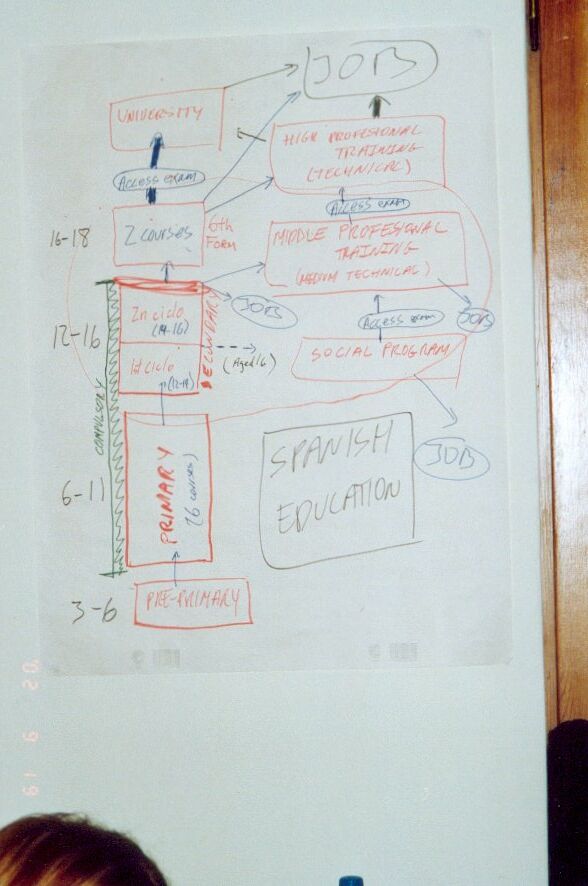 JOB
UNIVERSITY
HIGH PROFESIONAL
TRAINING
(TECHNICAL)
Access exam
Access exam
16-18
2 courses
6th
Form
MIDDLE PROFESIONAL
TRAINING
(MEDIUM TECHNICAL)
2n ciclo
(14-16)
JOB
JOB
Access exam
12-16
SECUNDARY
1st ciclo
(12-14)
(Aged 16)
SOCIAL PROGRAM
COMPULSORY
JOB
6-11
PRIMARY
(6 courses)
SPANISH
EDUCATION
3-6
PRE-PRIMARY